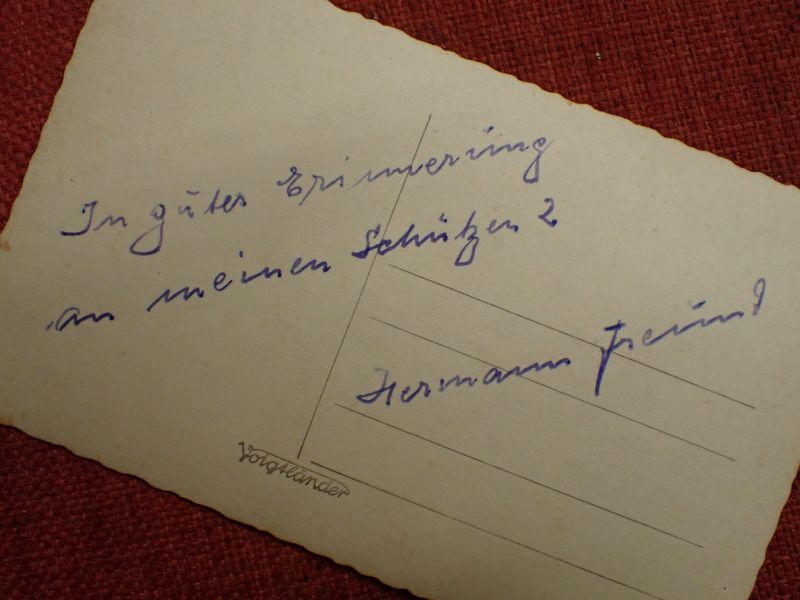 In guter Erinnerung
an meinen Schützen 2
Hermann Freund
Voigtländer